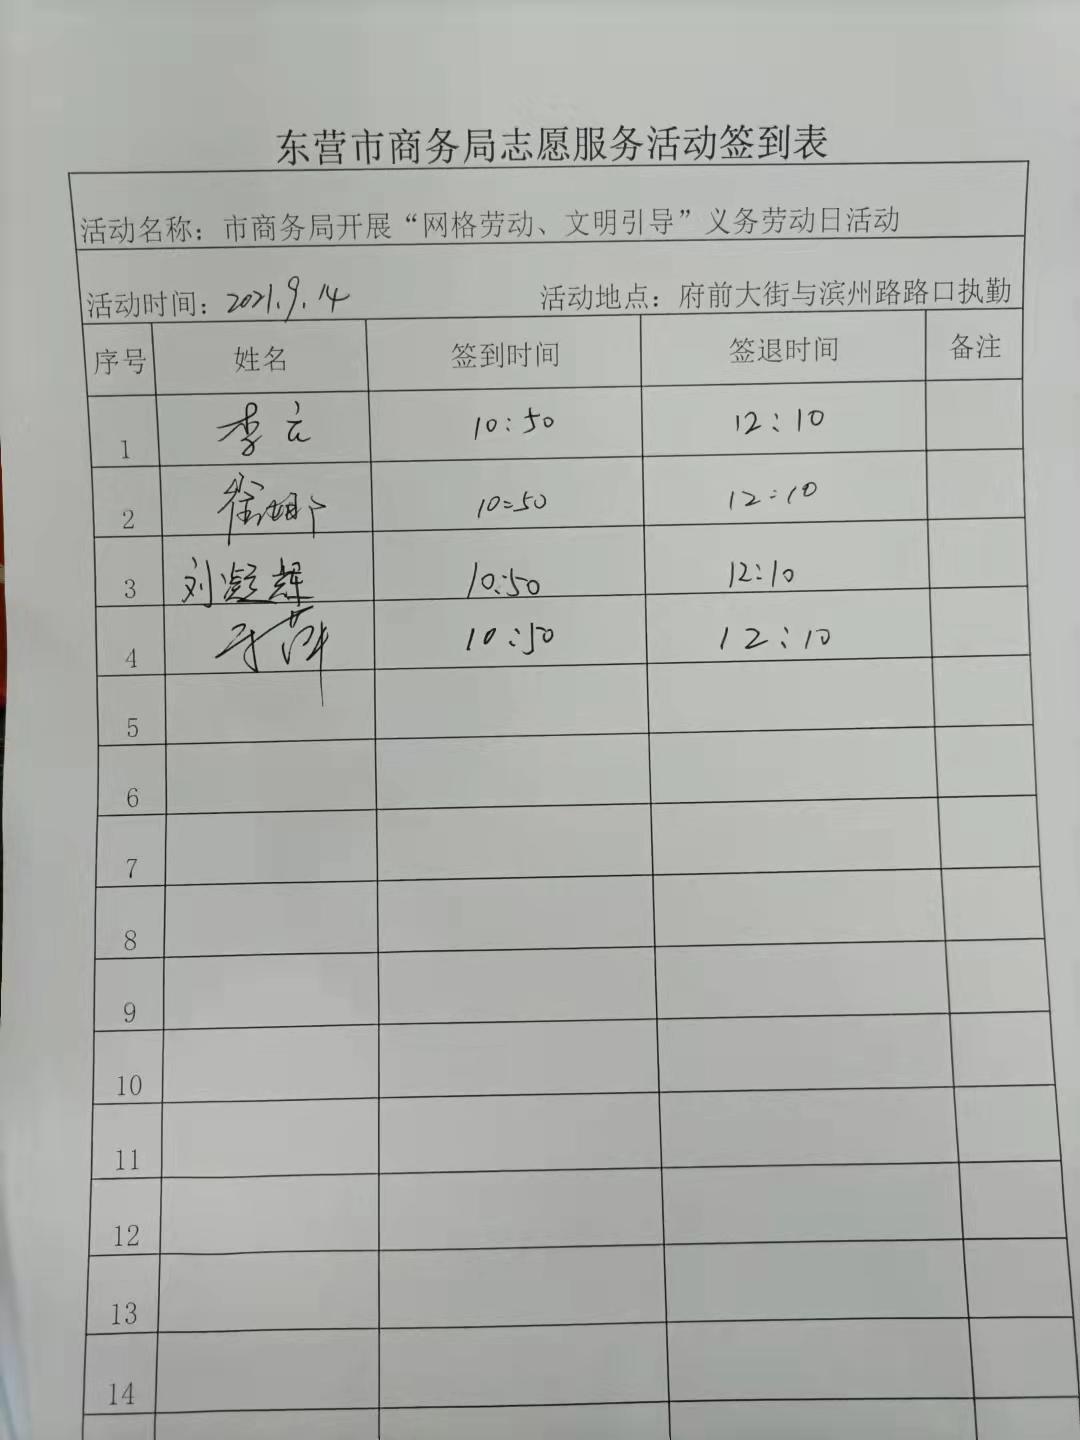 东营市商务局志愿服务活动签到表
活动名称：市商务局开展“网格劳动、文明引导”义务劳动日活动
活动时间：2021.9.14 活动地点：府前大街与滨州路路口执勤
序号 姓名 签到时间 签退时间 备注
1 李云 10:50 12:10
2 徐娜 10:50 12:10
3 刘凝辉 10:50 12:10
4 于萍 10:50 12:10
5
6
7
8
9
10
11
12
13
14